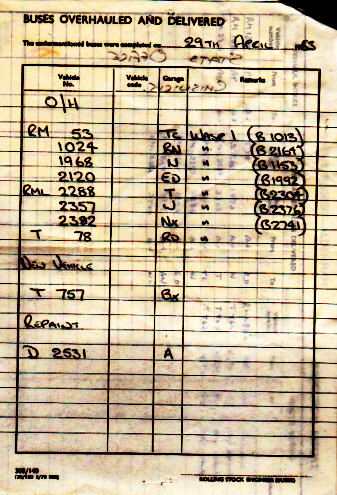 BUSES OVERHAULED AND DELIVERED
The undermentioned buses were completed on 29TH APRIL 1983
Vehicle No. Vehicle code Garage Remarks
O/H
RM 53 TC WASP 1 (B1013)
1024 RN S (B2164)
1968 N S (B1453)
2120 ED S (B1992)
RML 2288 T S (B2304)
2357 U S (B2376)
2382 NX S (B2741)
T 78 RD S
NEW VEHICLE
T 757 BX
REPAINT
D 2531 A
ROLLING STOCK ENGINEER (BUSES)